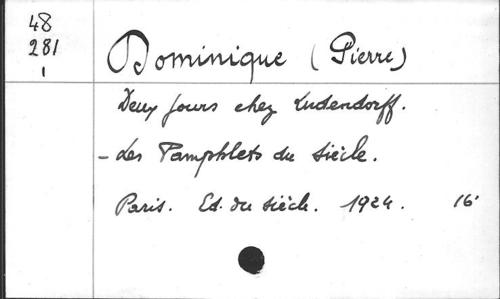 48
281
1
Dominique (Pierre)
Deux jours chez Ludendorff.
- Les Pamphlets du siècle.
Paris. Ed. du siècle. 1924. 16°